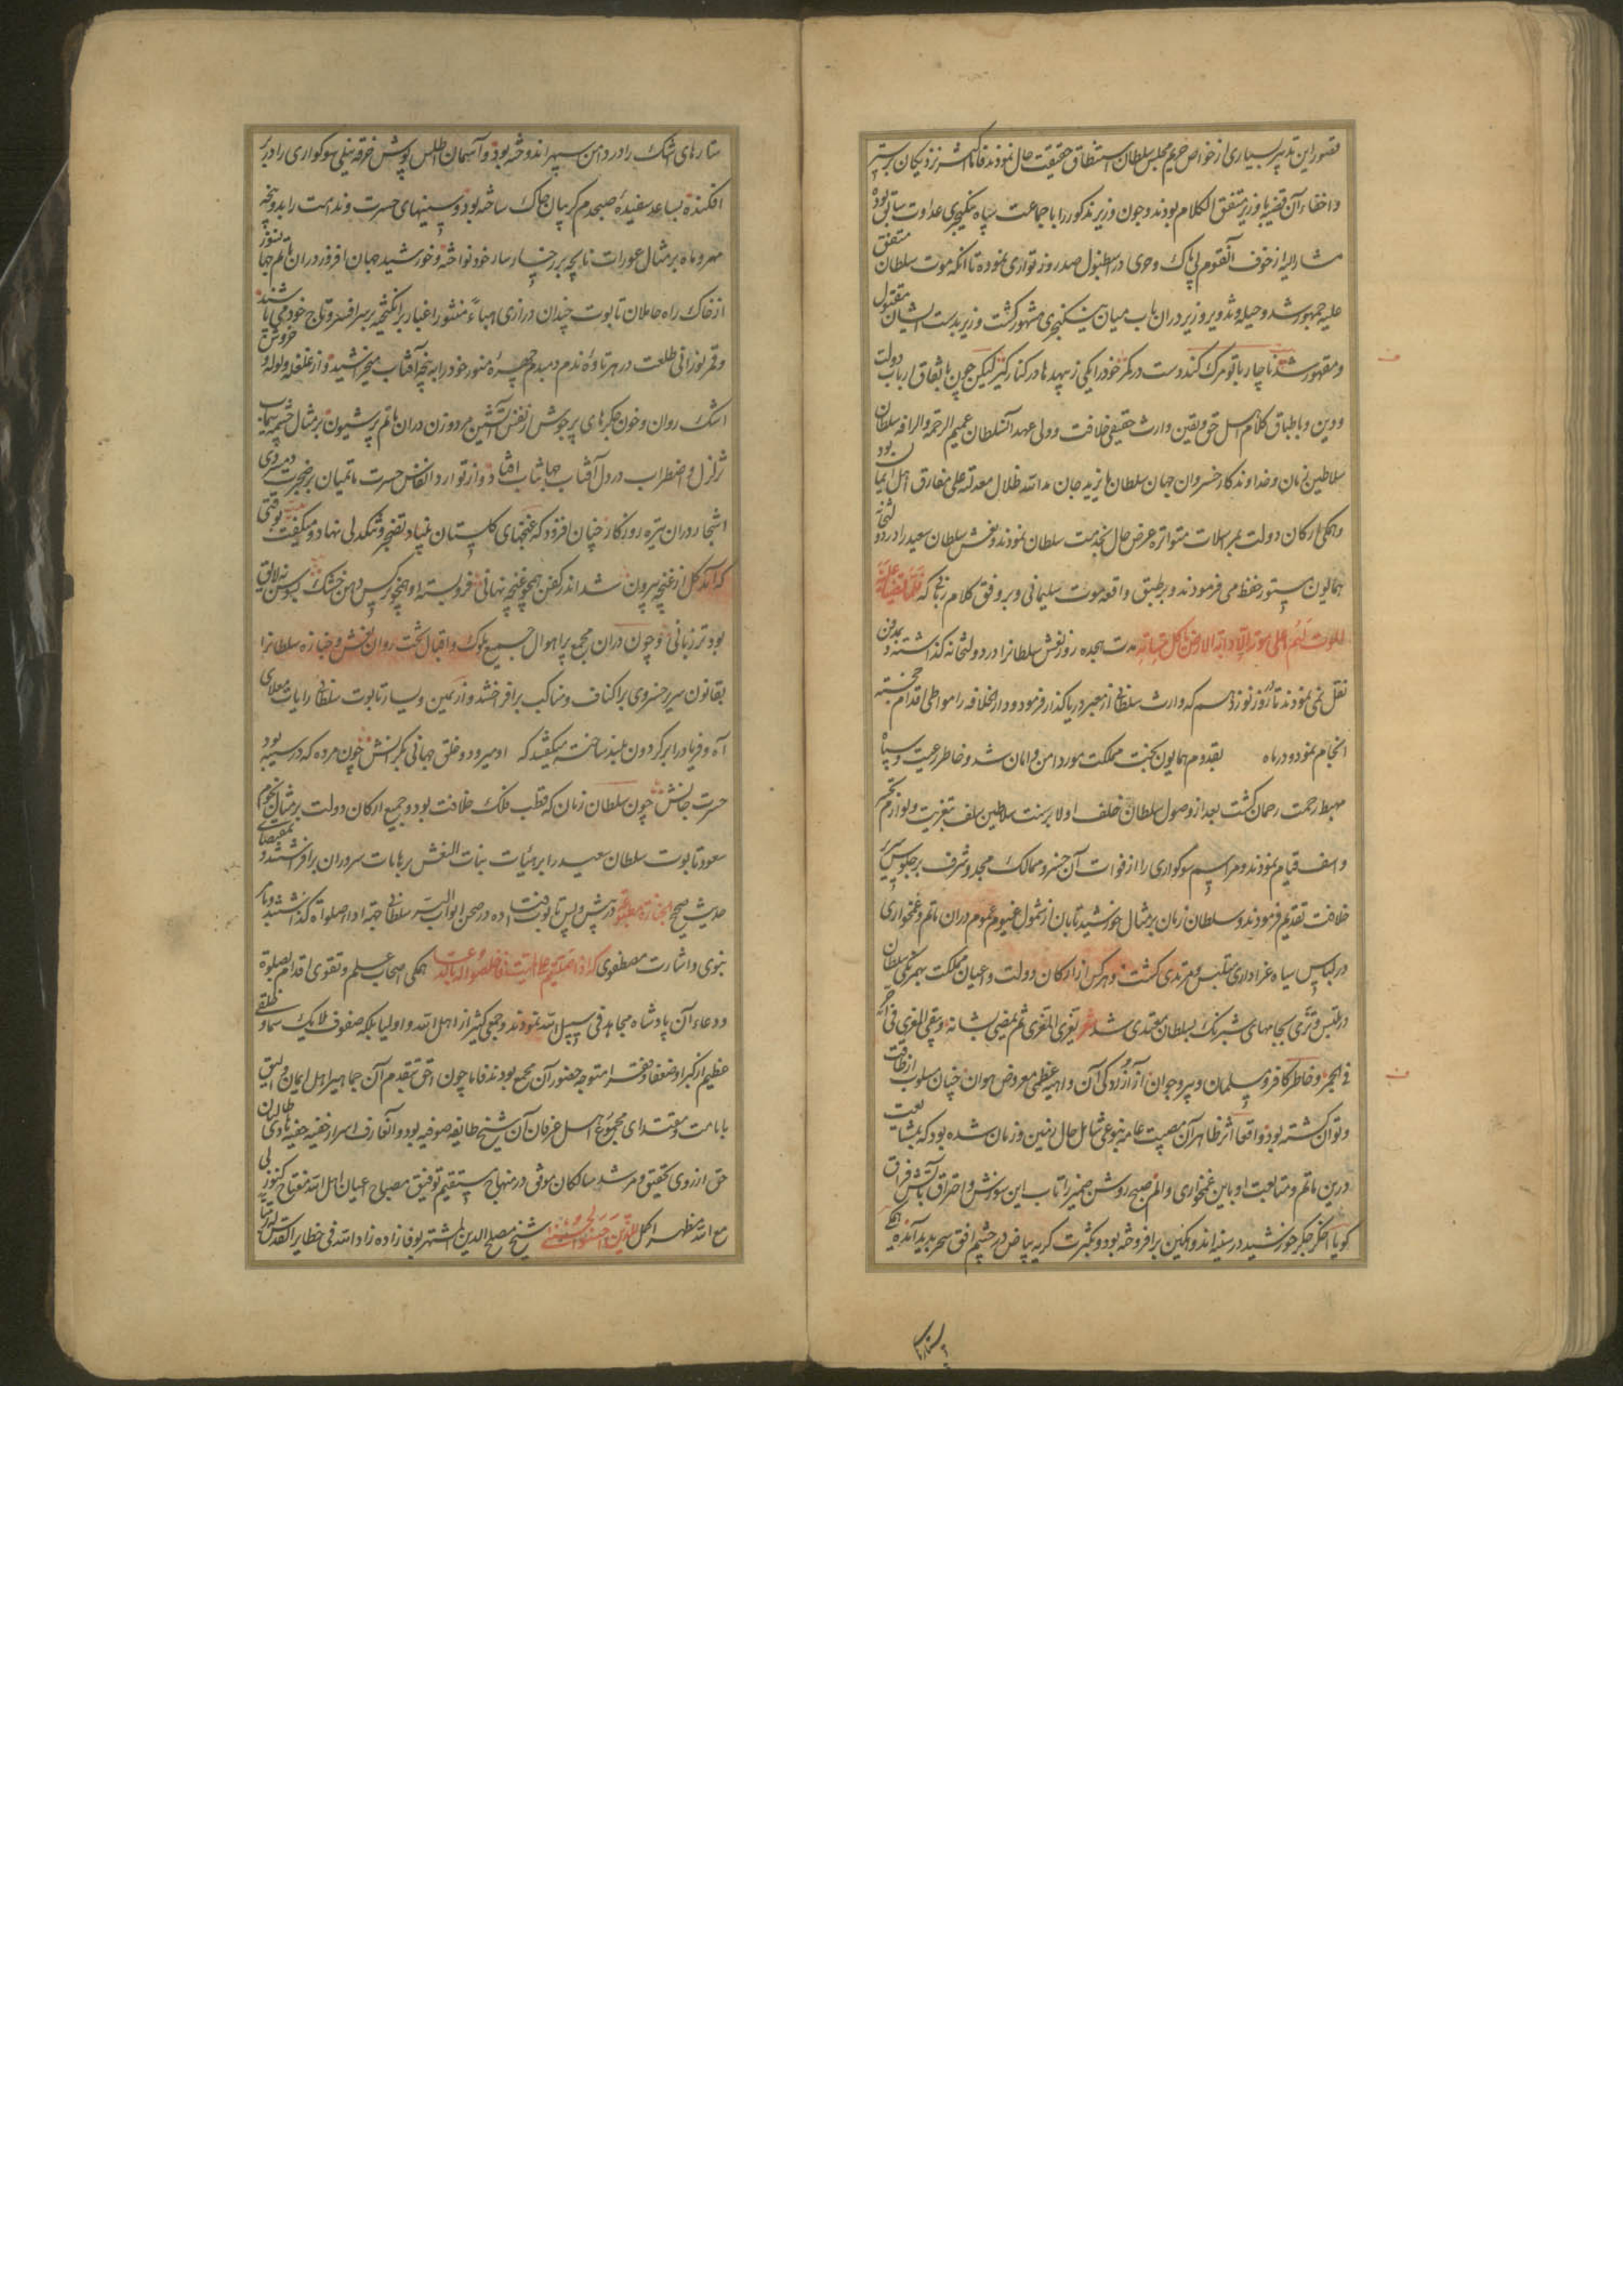 قصور این تدبیر بسیاری از خواص حریم مجلس سلطان استنطاق حقیقت حال نمودند فاما اکثر نزدیکان بر ستر
و اخفاء آن قضیه با وزیر متفق الکلام بودند و چون وزیر مذکور را با جماعت سپاه ینکیچری عداوت سابق بود
مشار الیه از خوف آنقوم بی باک و حری در اسطنبول صد روز تواری نموده تا آنکه موت سلطان متفق
علیه جمهور شد و حیله و تذویر وزیر در آن باب میان ینکیچری مشهور کشت و زیر بدست ایشان مقتول
و مقهور شد ناچار با تو مرک کند دست در کمر خود را یکی زبهد ها در کنار کیر لیکن چون باتفاق ارباب دولت
و دین و باطباق کلام اهل حق و یقین وارث حقیقی خلافت و ولی عهد آنسلطان عمیم الرحمة والرافه سلطان
سلاطین زمان و خداوندکار خسروان جهان سلطان بایزید خان مد الله ظلال معدلته علی مفارق اهل ایمان بود
و همکی ارکان دولت بمراسلات متواتره عرض حال بخدمت سلطان نمودند و نعش سلطان سعید را در دولتخانه
همایون مستور حفظ می فرمودند و بر طبق واقعه موت سلیمانی و بر وفق کلام ربانی که فلما قضینا علیه
الموت ما دلهم علی موته الا دابة الارض تاکل منساته مدت هجده روز نعش سلطانرا در دولتخانه کذاشته و بمدفن
نقل نمی نمودند تا روز نوزدهم که وارث سلطانی از معبر دریا کذار فرمود و دار الخلافه را مواطی اقدام خجسته
انجام نمود و در ماه بقدوم همایون بخت مملکت مورد امن و امان شد و خاطر رعیت و سپاه
مهبط رحمت رحمان کشت بعد از وصول سلطان خلف اولا بر سنت سلاطین سلف بتعزیت و لوازم
و اسف قیام نمودند و مراسم سوکواری را از فوات آن خسرو ممالک مجد و شرف بر جلوس سریر
خلافت تقدیم فرمودند و سلطان زمان بر مثال خورشید تابان از شمول غیوم عموم در آن ماتم و غمخواری
در لباس سیاه عزاداری متلبس و مرتدی کشت و هر کس از ارکان دولت و اعیان مملکت بهمرنکی سلطان
در تلبس و تزمی بجامهای شبرنک بسلطان مقتدی شد شعر یعزی المعزی ثم یمضی لشانه و یبقی المعزی فی احر
فی الجمر و خاطر کافر و مسلمان و پیر و جوان از آزردکی آن داهیه عظمی معروض هوان چنان مسلوب از طاقت
و توان کشته بود و اقعا اثر ظاهر آن مصیبت عامه بنوعی شامل حال زمین و زمان شده بود که بمشایعت
درین ماتم و متابعت او باین غمخواری و الم صبح روشن ضمیر را تاب این سوزش و احتراق بآتش فراق
کویا اخکر جکر خورشید در سینه اندوهکین بر افروخته بود و بکثرت کریه بیاض در چشم افق سحر پدید آمده
ستارهای اشک را در دامن سپهر اندوخته بود و آسمان اطلس پوش خرقه نیلی سوکواری را در بر
افکنده بساعد سفیده صبحدم کریبان چاک ساخته بود و سینهای حسرت و ندامت را بدو پنجه
مهر و ماه بر مثال عورات تابچه بر رخسار سار خود نواخته و خورشید جهان افروز در آن ماتم جهانسوز
از خاک راه حاملان تابوت چندان درازی هباء منثورا غبار بر انکیخته بر سر افسر و تاج خود می پاشید
و قمر نورانی طلعت در هر تاوه ندم دمبدم چهره منور خود را به پنجه آفتاب میخراشید و از غلغله و ولوله خروش
اشک روان و خون جکرهای پر جوش از نفس آتشین مرد و زن در آن ماتم پر شیون بر مثال چشمه سیماب
تزلزل و اضطراب در دل آفتاب جهانتاب افتاد و از توارد انفاس حسرت ماتمیان پر ضجرت
اشجار در آن تیره روزکار چنان افزود که غنچهای کلستان بنیاد تضجر و تنکدلی نهاد و میکفت
که آمد کل از غنچه بیرون شد اندر کفن همچو غنچه نهانی فرو بسته او همچو نرکس دهن خشک سوسن نه لایق
بود تر زبانی و چون در آن مجمع پر اهوال جمیع ملوک و اقبال تخت روان نعش و جنازه سلطانرا
بقانون سریر خسروی بر اکناف و مناکب بر افراختند و از یمین و یسار تابوت سلطانی رایات معلای
آه و فریاد را بر کردون بلند ساخته میکفتند که او میرود و خلق جهانی نکرانش چون مرده که در سینه بود
حسرت جانش چون سلطان زمان که قطب فلک خلافت بود و جمیع ارکان دولت بر مثال نجوم
سعود تابوت سلطان سعید را بر هیئات بنات النعش بر هامات سروران بر افراشتند و بمقتضای
حدیث صحیح الجنازة متبوعة در پیش و پس تابوت افتاده در صحن ابواب البر سلطانی جهة ادا صلواة کذاشتند و بامر
نبوی و اشارت مصطفوی که اذا صلیتم علی المیت فاخلصوا له الدعا همکی اصحاب علم و تقوی اقدام بصلوة
و دعاء آن پادشاه مجاهد فی سبیل الله نمودند و جمعی کثیر از اهل الله و اولیا بلکه صفوف ملایک سما و خلقی
عظیم از کبرا و ضعفا و فقرا متوجه حضور آن مجمع بودند فاما چون احق بتقدم آن جماهیر اهل ایمان و الیق
بامامت و مقتدای مجموع اهل عرفان آن شیخ طایفه صوفیه بود و آنعارف اسرار خفیه حفیه هادی طالبان
حق از روی تحقیق و مرشد سالکان موثق در منهاج مستقیم توفیق مصباح اعیان اهل الله مفتاح کنوز لی
مع الله مظهر اکمل للذین احسنوا الحسنی شیخ مصلح الدین المشتهر بوفا زاده زاد الله فی حظایر القدس